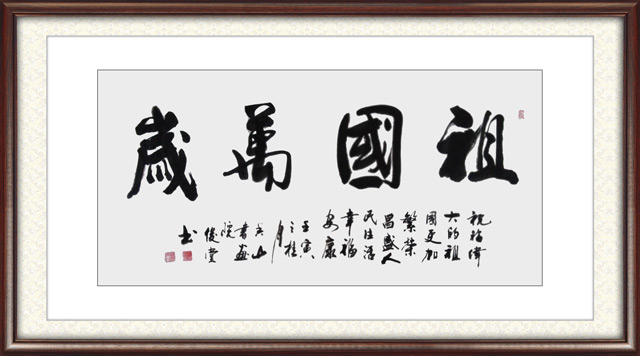 祖國萬歲
祝福偉
大的祖
國更加
繁榮
昌盛人
民生活
幸福
安康
壬寅
之桂
月
山
書畫
院
俊
书